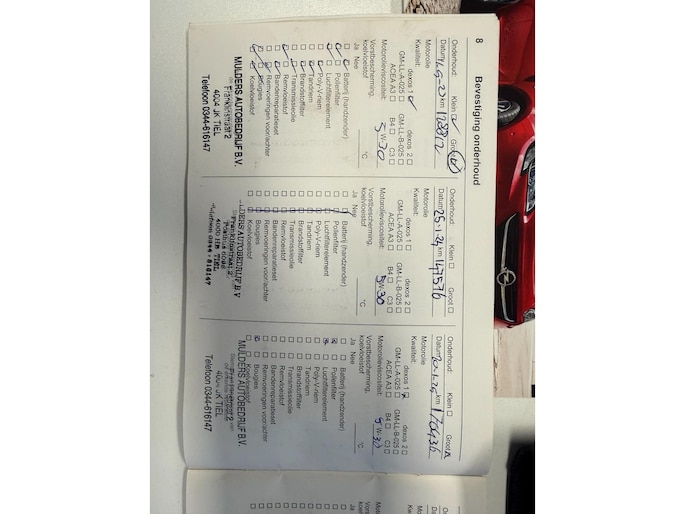 8
Bevestiging onderhoud
Onderhoud: Klein Groot
Datum km 128812
Motorolie
Kwaliteit: dexos 1 dexos 2
GM-LL-A-025 GM-LL-B-025
ACEA A3 B4 C3
Motorolieviscositeit: 5 W- 30
Vorstbescherming, koelvloeistof °C
Ja Nee
Batterij (handzender)
Pollenfilter
Luchtfilterelement
Poly-V-riem
Tandriem
Brandstoffilter
Transmissieolie
Remvloeistof
Bandenreparatieset
Remvoeringen voor/achter
Bougies
Koelvloeistof
MULDERS AUTOBEDRIJF B.V.
Franklinstraat 2
4004 JK TIEL
Telefoon 0344-616147
Onderhoud: Klein Groot
Datum 25-1-24 km 147576
Motorolie
Kwaliteit: dexos 1 dexos 2
GM-LL-A-025 GM-LL-B-025
ACEA A3 B4 C3
Motorolieviscositeit: 5 W- 30
Vorstbescherming, koelvloeistof °C
Ja Nee
Batterij (handzender)
Pollenfilter
Luchtfilterelement
Poly-V-riem
Tandriem
Brandstoffilter
Transmissieolie
Remvloeistof
Bandenreparatieset
Remvoeringen voor/achter
Bougies
Koelvloeistof
LDERS AUTOBEDRIJF B.V
Franklinstraat 2
TIEL
Onderhoud: Klein Groot
Datum km 170436
Motorolie
Kwaliteit: dexos 1 dexos 2
GM-LL-A-025 GM-LL-B-025
ACEA A3 B4 C3
Motorolieviscositeit: 5 W- 30
Vorstbescherming, koelvloeistof °C
Ja Nee
Batterij (handzender)
Pollenfilter
Luchtfilterelement
Poly-V-riem
Tandriem
Brandstoffilter
Transmissieolie
Remvloeistof
Bandenreparatieset
Remvoeringen voor/achter
Bougies
Koelvloeistof
MULDERS AUTOBEDRIJF B.V.
4004 JK TIEL
Telefoon 0344-616147